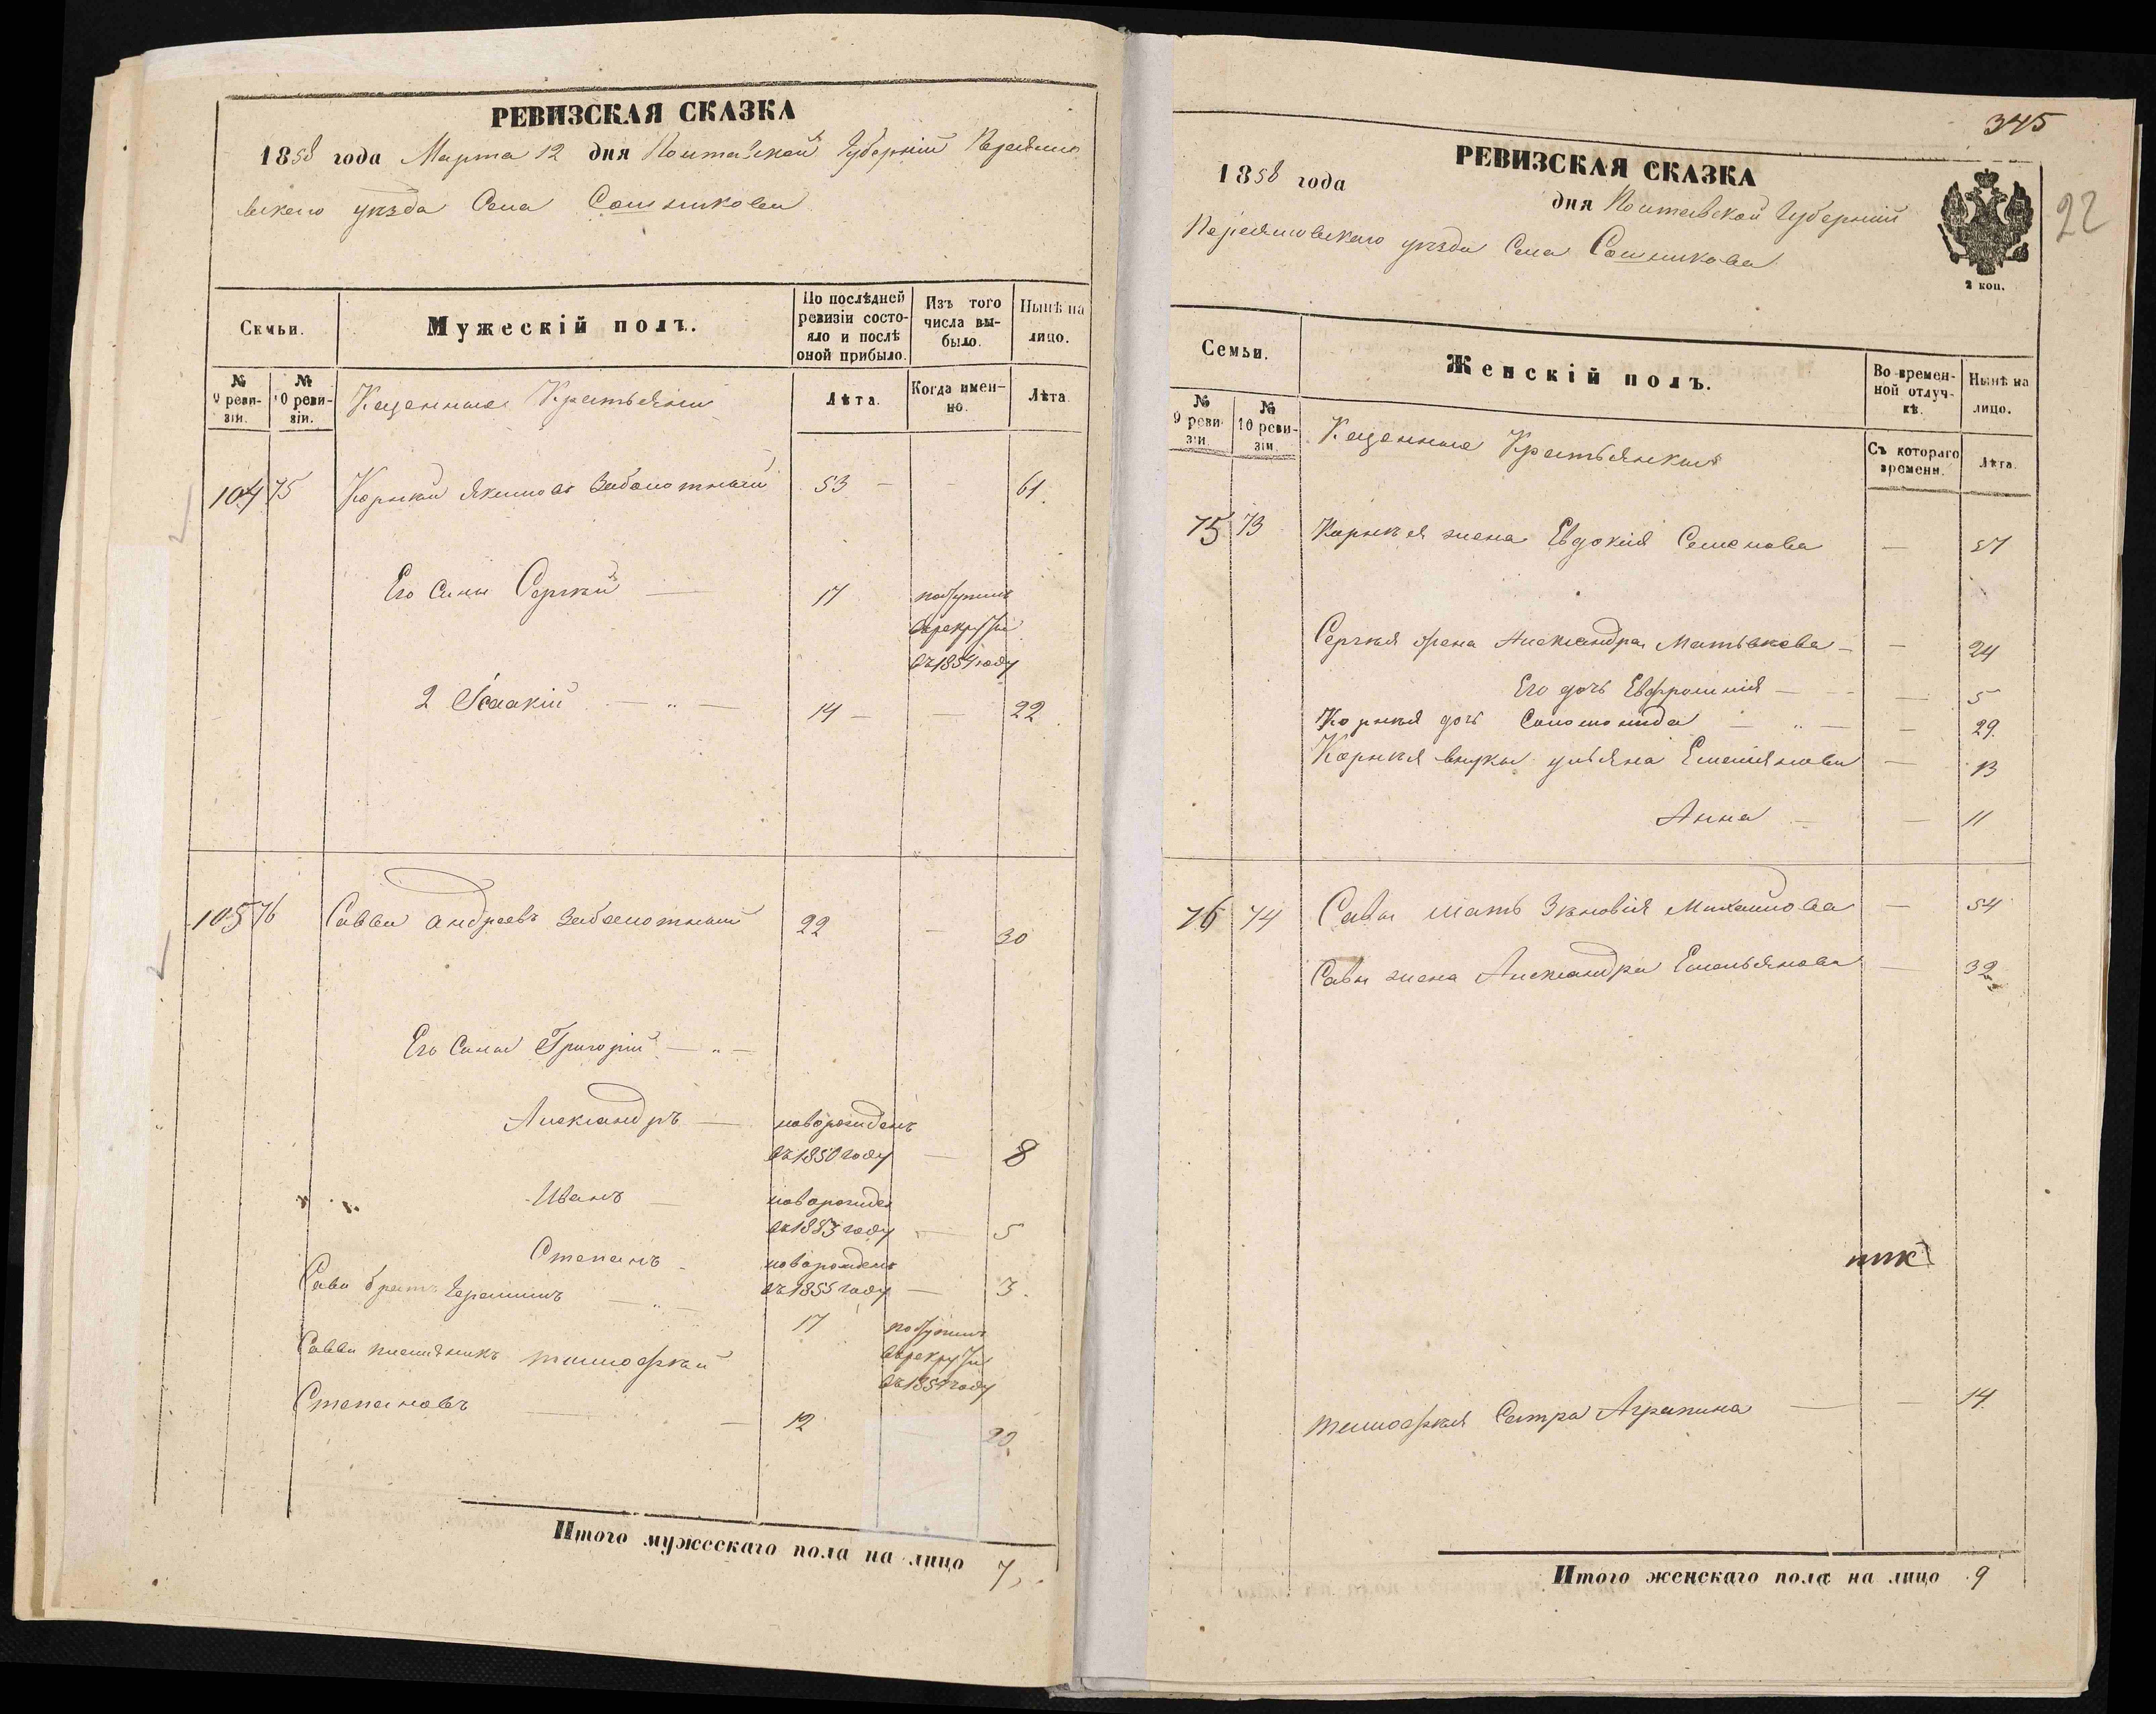 РЕВИЗСКАЯ СКАЗКА
1858 года Марта 12 дня Полтавской Губерніи Переяслов
скаго уезда Села Сошникова
Семьи.
Мужескій полъ.
По послѣдней ревизіи состо-
яло и послѣ оной прибыло.
Изъ того числа вы-
было.
Нынѣ на лицо.
№ 9 реви-
зіи.
№ 10 реви-
зіи.
Казенные Крестьяни
Лѣта.
Когда имен-
но.
Лѣта
104 75 Корнѣй Якимовъ Заболотный 53 — — 61.
Его Сыны Сергѣй — 17 поступилъ
въ рекруты
въ 1854 году
2 Ісаакій — „ — 14 — — 22
105 76 Савва Андреевъ Заболотный 22 — 30
Его Сыны Григорій — „ —
Александръ — новорожденъ
въ 1850 году — 8
Иванъ — новорожден
въ 1853 году — 5
Степанъ - новорожденъ
въ 1855 году — 3.
Савы братъ Герасимъ — „ — 17 поступилъ
въ рекруты
въ 1854 году
Саввы племяникъ Тимофѣй
Степановъ — — 12 20.
Итого мужескаго пола на лицо 7
345
22
РЕВИЗСКАЯ СКАЗКА
1858 года дня Полтавской Губерніи
Переясловскаго уезда Села Сошникова
2 коп.
Семьи.
Женскій полъ.
Во времен-
ной отлуч-
кѣ.
Нынѣ на лицо.
№ 9 реви-
зіи.
№ 10 реви-
зіи.
Казенные Крестьянки
Съ котораго времени.
Лѣта.
75 73 Корнѣя жена Евдокія Семенова — 57
Сергѣя жена Александра Матвѣева — — 24
Его дочь Евфросинія — — — 5
Корнѣя дочь Соломонида — „ — — 29.
Корнѣя внуки Ульяна Емелянова — 13
Анна — — 11
76 74 Савы мать Зѣновія Михаилова — 54
Савы жена Александра Емельянова — 32
Тимофѣя Сестра Агрипина — — 14.
Итого женскаго пола на лицо 9